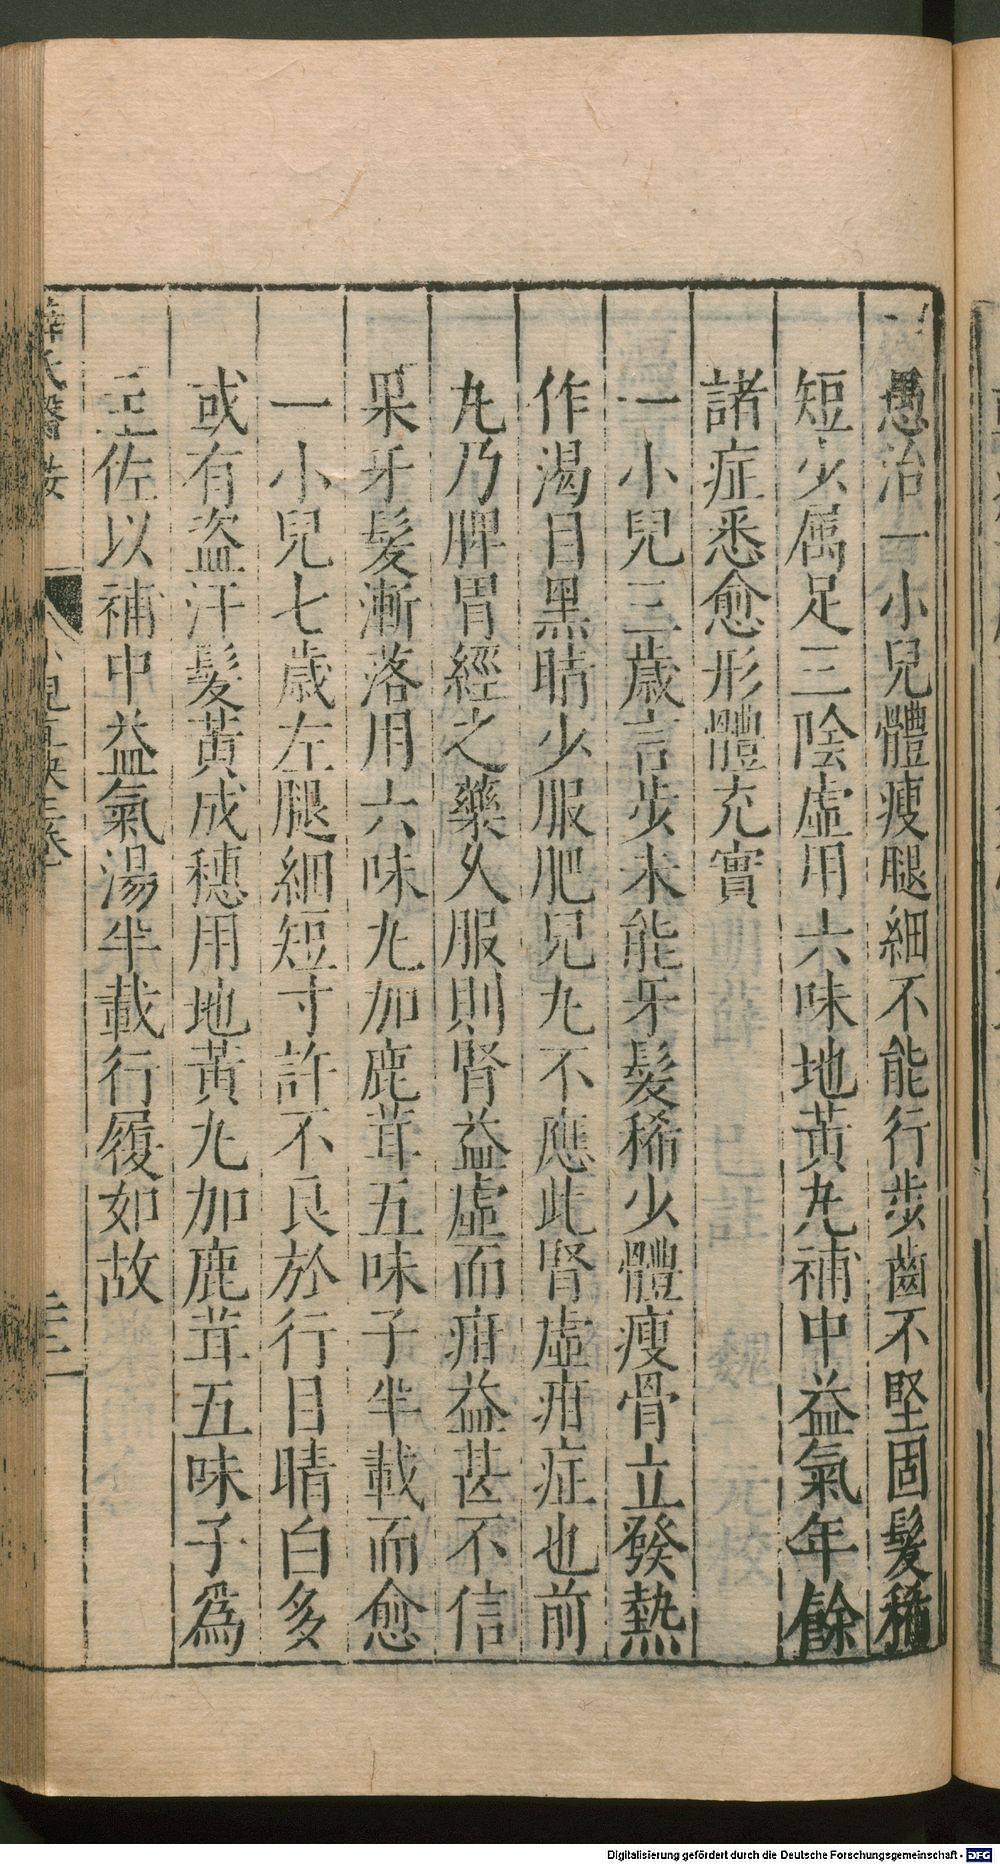 愚治一小兒體瘦腿細不能行步齒不堅固髮稀
短少属足三陰虛用六味地黃丸補中益氣年餘
諸症悉愈形體充實
一小兒三歲言步未能牙髮稀少體瘦骨立發熱
作渴目黑睛少服肥兒丸不應此腎虛疳症也前
丸乃脾胃經之藥久服則腎益虛而疳益甚不信
果牙髮漸落用六味丸加鹿茸五味子半載而愈
一小兒七歲左腿細短寸許不良於行目睛白多
或有盗汗髮黃成穗用地黃丸加鹿茸五味子爲
主佐以補中益氣湯半載行履如故
薛氏醫按
小兒直訣三卷
Digitalisierung gefördert durch die Deutsche Forschungsgemeinschaft - DFG